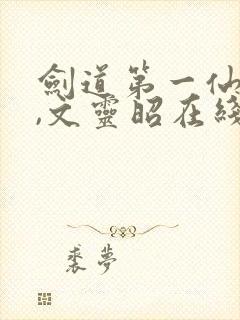 劍道第一仙
,文靈昭在綫
裘夢